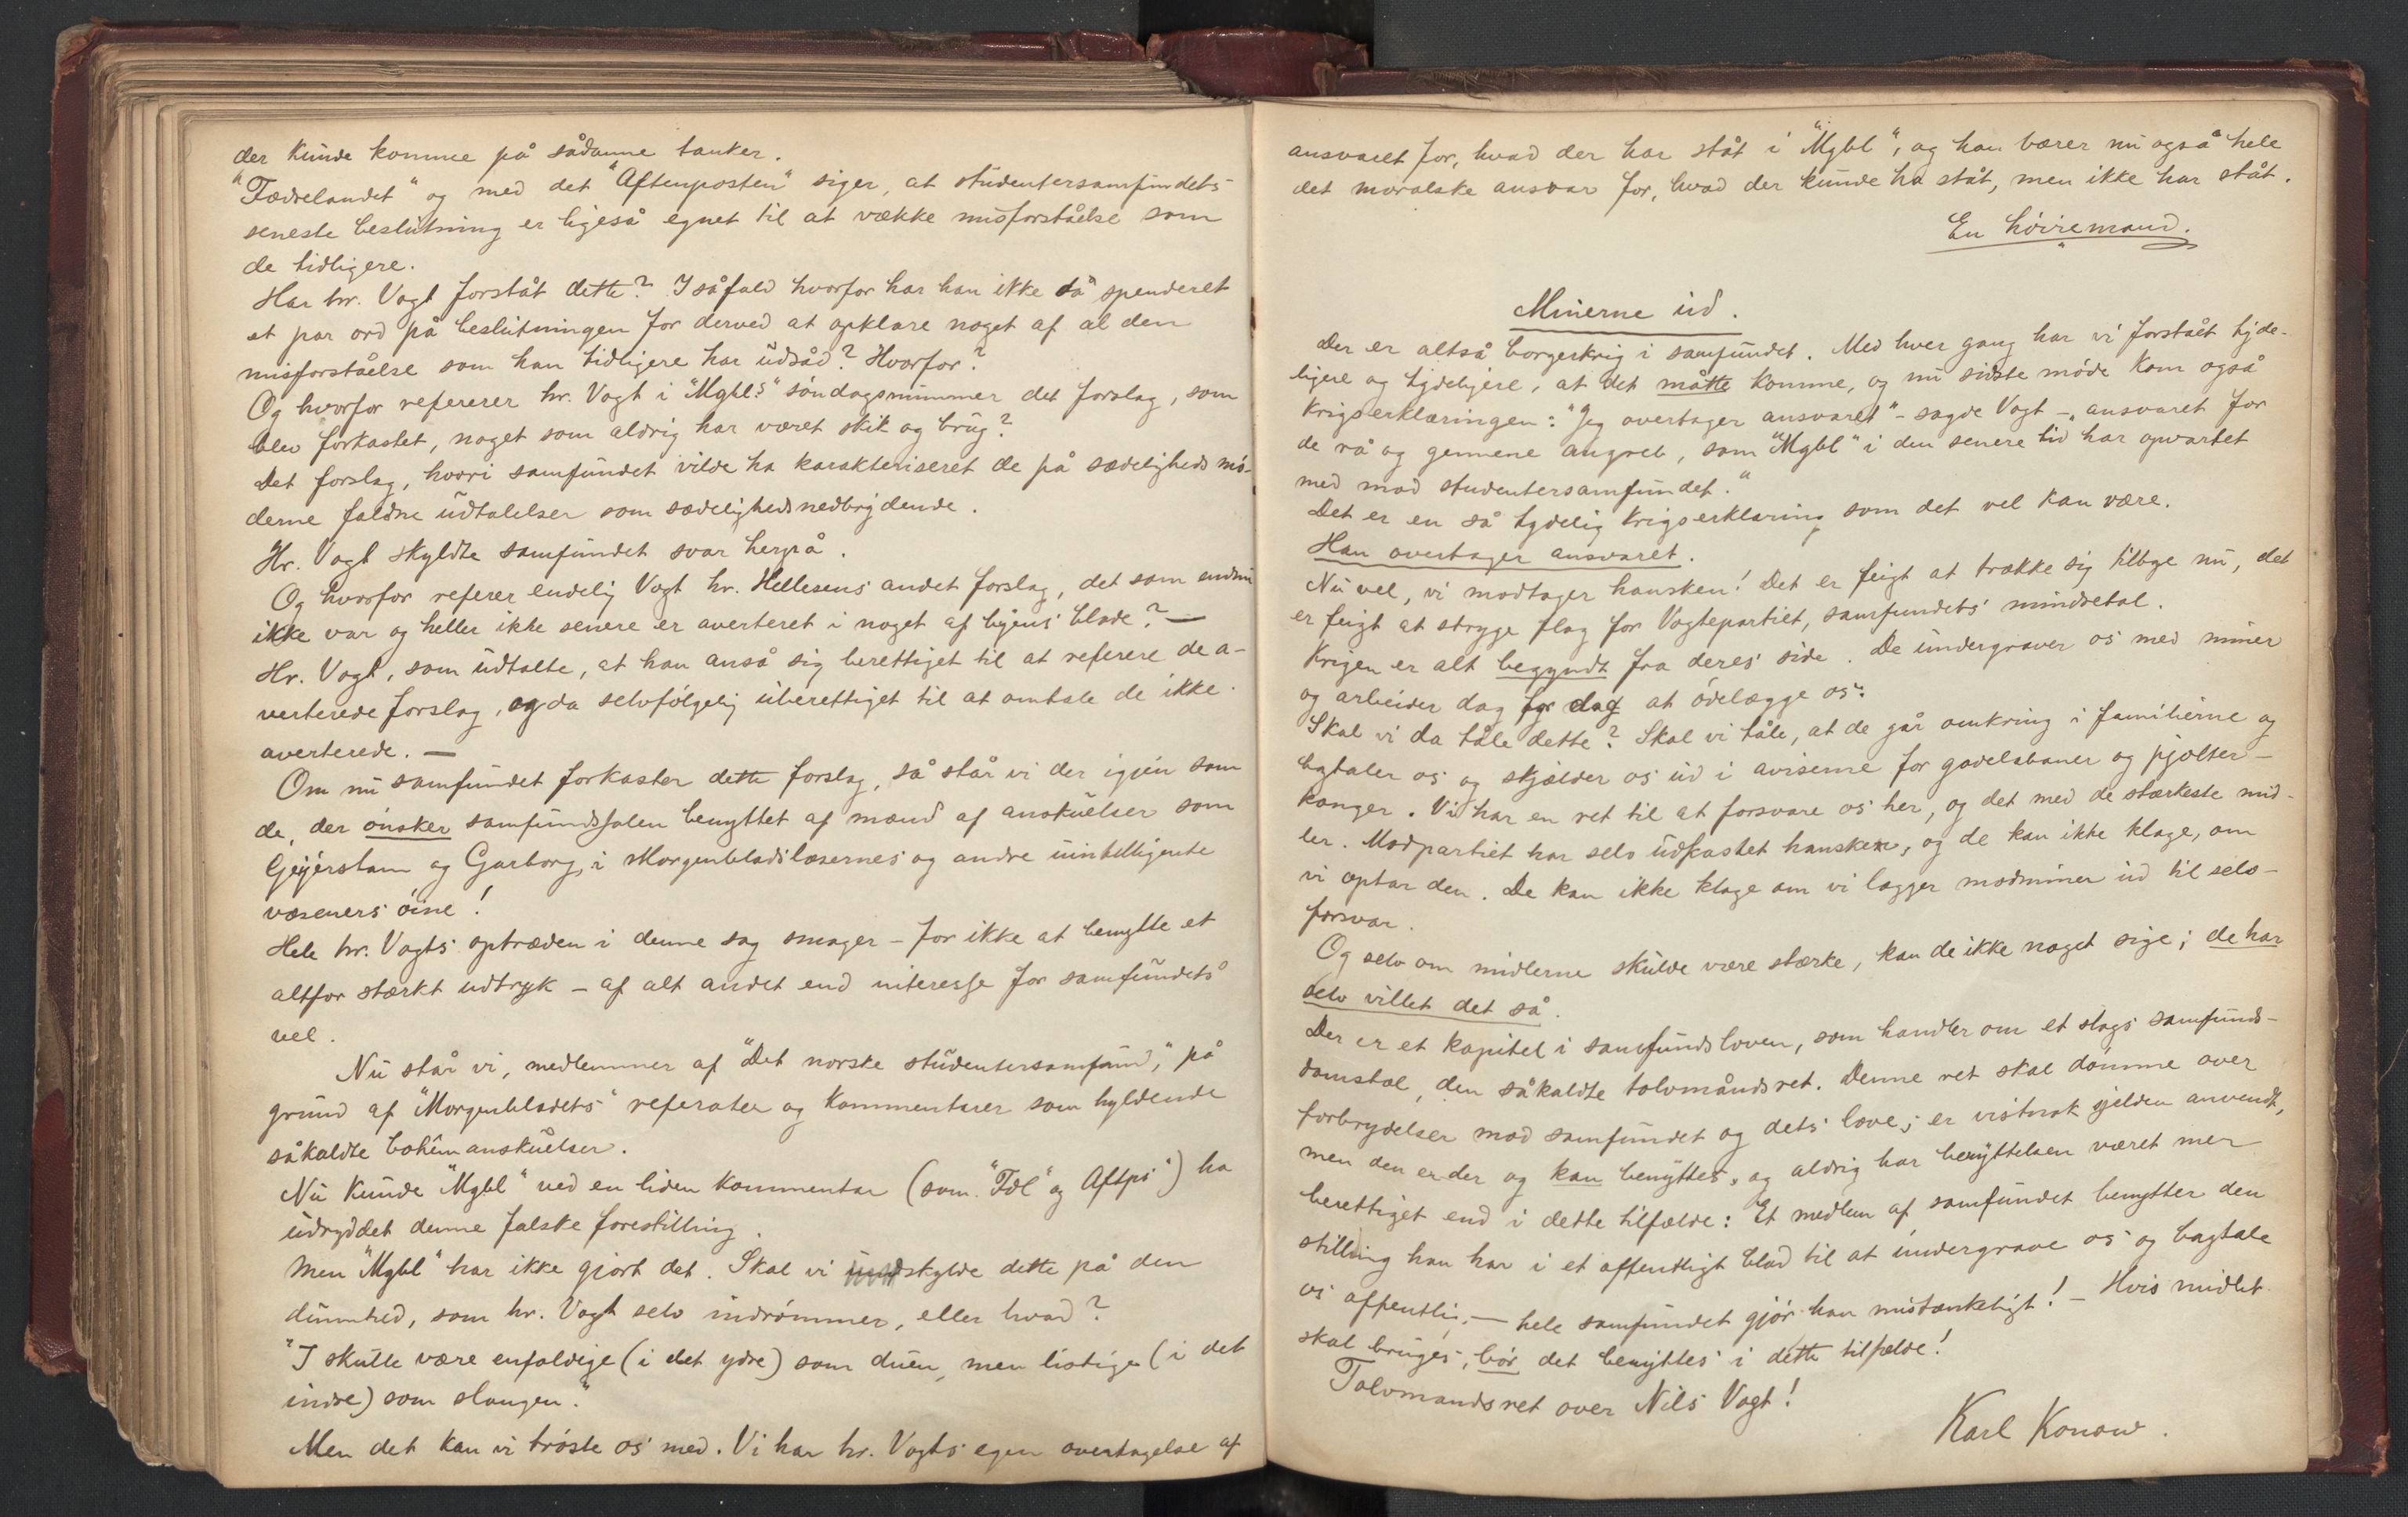 der kunde komme på sådanne tanker.
"Fædrelandet" og med det "Aftenposten" siger, at studentersamfundets
seneste beslutning er ligeså egnet til at vække misforståelse som
de tidligere.
Har hr. Vogt forståt dette? I såfald hvorfor har han ikke da spenderet
et par ord på beslutningen for derved at opklare noget af al den
misforståelse som han tidligere har udsåd? Hvorfor?
Og hvorfor refererer hr. Vogt i "Mgbl.s" søndagsnummer det forslag, som
blev forkastet, noget som aldrig har været skik og brug?
Det forslag, hvori samfundet vilde ha karakteriseret de på sædelighedsmø-
derne faldne udtalelser som sædelighedsnedbrydende.
Hr. Vogt skyldte samfundet svar herpå.
Og hvorfor referer endelig Vogt hr. Hellesens andet forslag, det som endnu
ikke var og heller ikke senere er averteret i noget af byens blade? —
Hr. Vogt, som udtalte, at han anså sig berettiget til at referere de a-
verterede forslag, og da selvfølgelig uberettiget til at omtale de ikke
averterede. —
Om nu samfundet forkaster dette forslag, så står vi der igjen som
de, der ønsker samfundssalen benyttet af mænd af anskuelser som
Gejerstam og Garborg, i Morgenbladslæsernes og andre uintelligente
væseners øine!
Hele hr. Vogts optræden i denne sag smager – for ikke at benytte et
altfor stærkt udtryk – af alt andet end interesse for samfundets
vel.
Nu står vi, medlemmer af "Det norske studentersamfund," på
grund af "Morgenbladets" referater og kommentarer som hyldende
såkaldte bohêmanskuelser.
Nu kunde "Mgbl" ved en liden kommentar (som "Fdl" og Aftps") ha
udryddet denne falske forestilling.
Men "Mgbl" har ikke gjort det. Skal vi skylde dette på den
dumhed, som hr. Vogt selv indrømmer, eller hvad?
"I skulle være enfoldige (i det ydre) som duen, men listige (i det
indre) som slangen."
Men det kan vi trøste os med. Vi har hr. Vogts egen overtagelse af
ansvaret for, hvad der har ståt i "Mgbl", og han bærer nu også hele
det moralske ansvar for, hvad der kunde ha ståt, men ikke har ståt.
En høiremand.
Minerne ud.
Der er altså borgerkrig i samfundet. Med hver gang har vi forstået tyde-
ligere og tydeligere, at det måtte komme, og nu sidste møde kom også
krigserklæringen: "Jeg overtager ansvaret" – sagde Vogt –, ansvaret for
de rå og gemene angreb, som "Mgbl" i den senere tid har opvartet
med mod studentersamfundet."
Det er en så tydelig krigserklæring som det vel kan være.
Han overtager ansvaret.
Nu vel, vi modtager hansken! Det er feigt at trække sig tilbge nu, det
er feigt at stryge flag for Vogtepartiet, samfundets mindretal.
Krigen er alt begyndt fra deres side. De undergraver os med miner
og arbeider dag for dag at ødelægge os.
Skal vi da tåle dette? Skal vi tåle, at de går omkring i familierne og
bagtaler os og skjælder os ud i aviserne for gadelabaner og pjolter-
konger. Vi har en ret til at forsvare os her, og det med de stærkeste mid-
ler. Modpartiet har selv udkastet hansken, og de kan ikke klage, om
vi optar den. De kan ikke klage om vi lægger modminer ud til selv-
forsvar.
Og selv om midlerne skulde være stærke, kan de ikke noget sige; de har
selv villet det så.
Der er et kapitel i samfundsloven, som handler om et slags samfunds-
domstol, den såkaldte tolvmåndsret. Denne ret skal dømme over
forbrydelser mod samfundet og dets love; er vistnok sjelden anvendt,
men den er der og kan benyttes, og aldrig har benyttelsen været mer
berettiget end i dette tilfælde: Et medlem af samfundet benytter den
stilling han har i et offentligt blad til at undergrave os og bagtale
os offentlig, — hele samfundet gjør han mistænkeligt! – Hvis midlet
skal bruges, bør det benyttes i dette tilfælde!
Tolvmandsret over Nils Vogt!
Karl Konow.